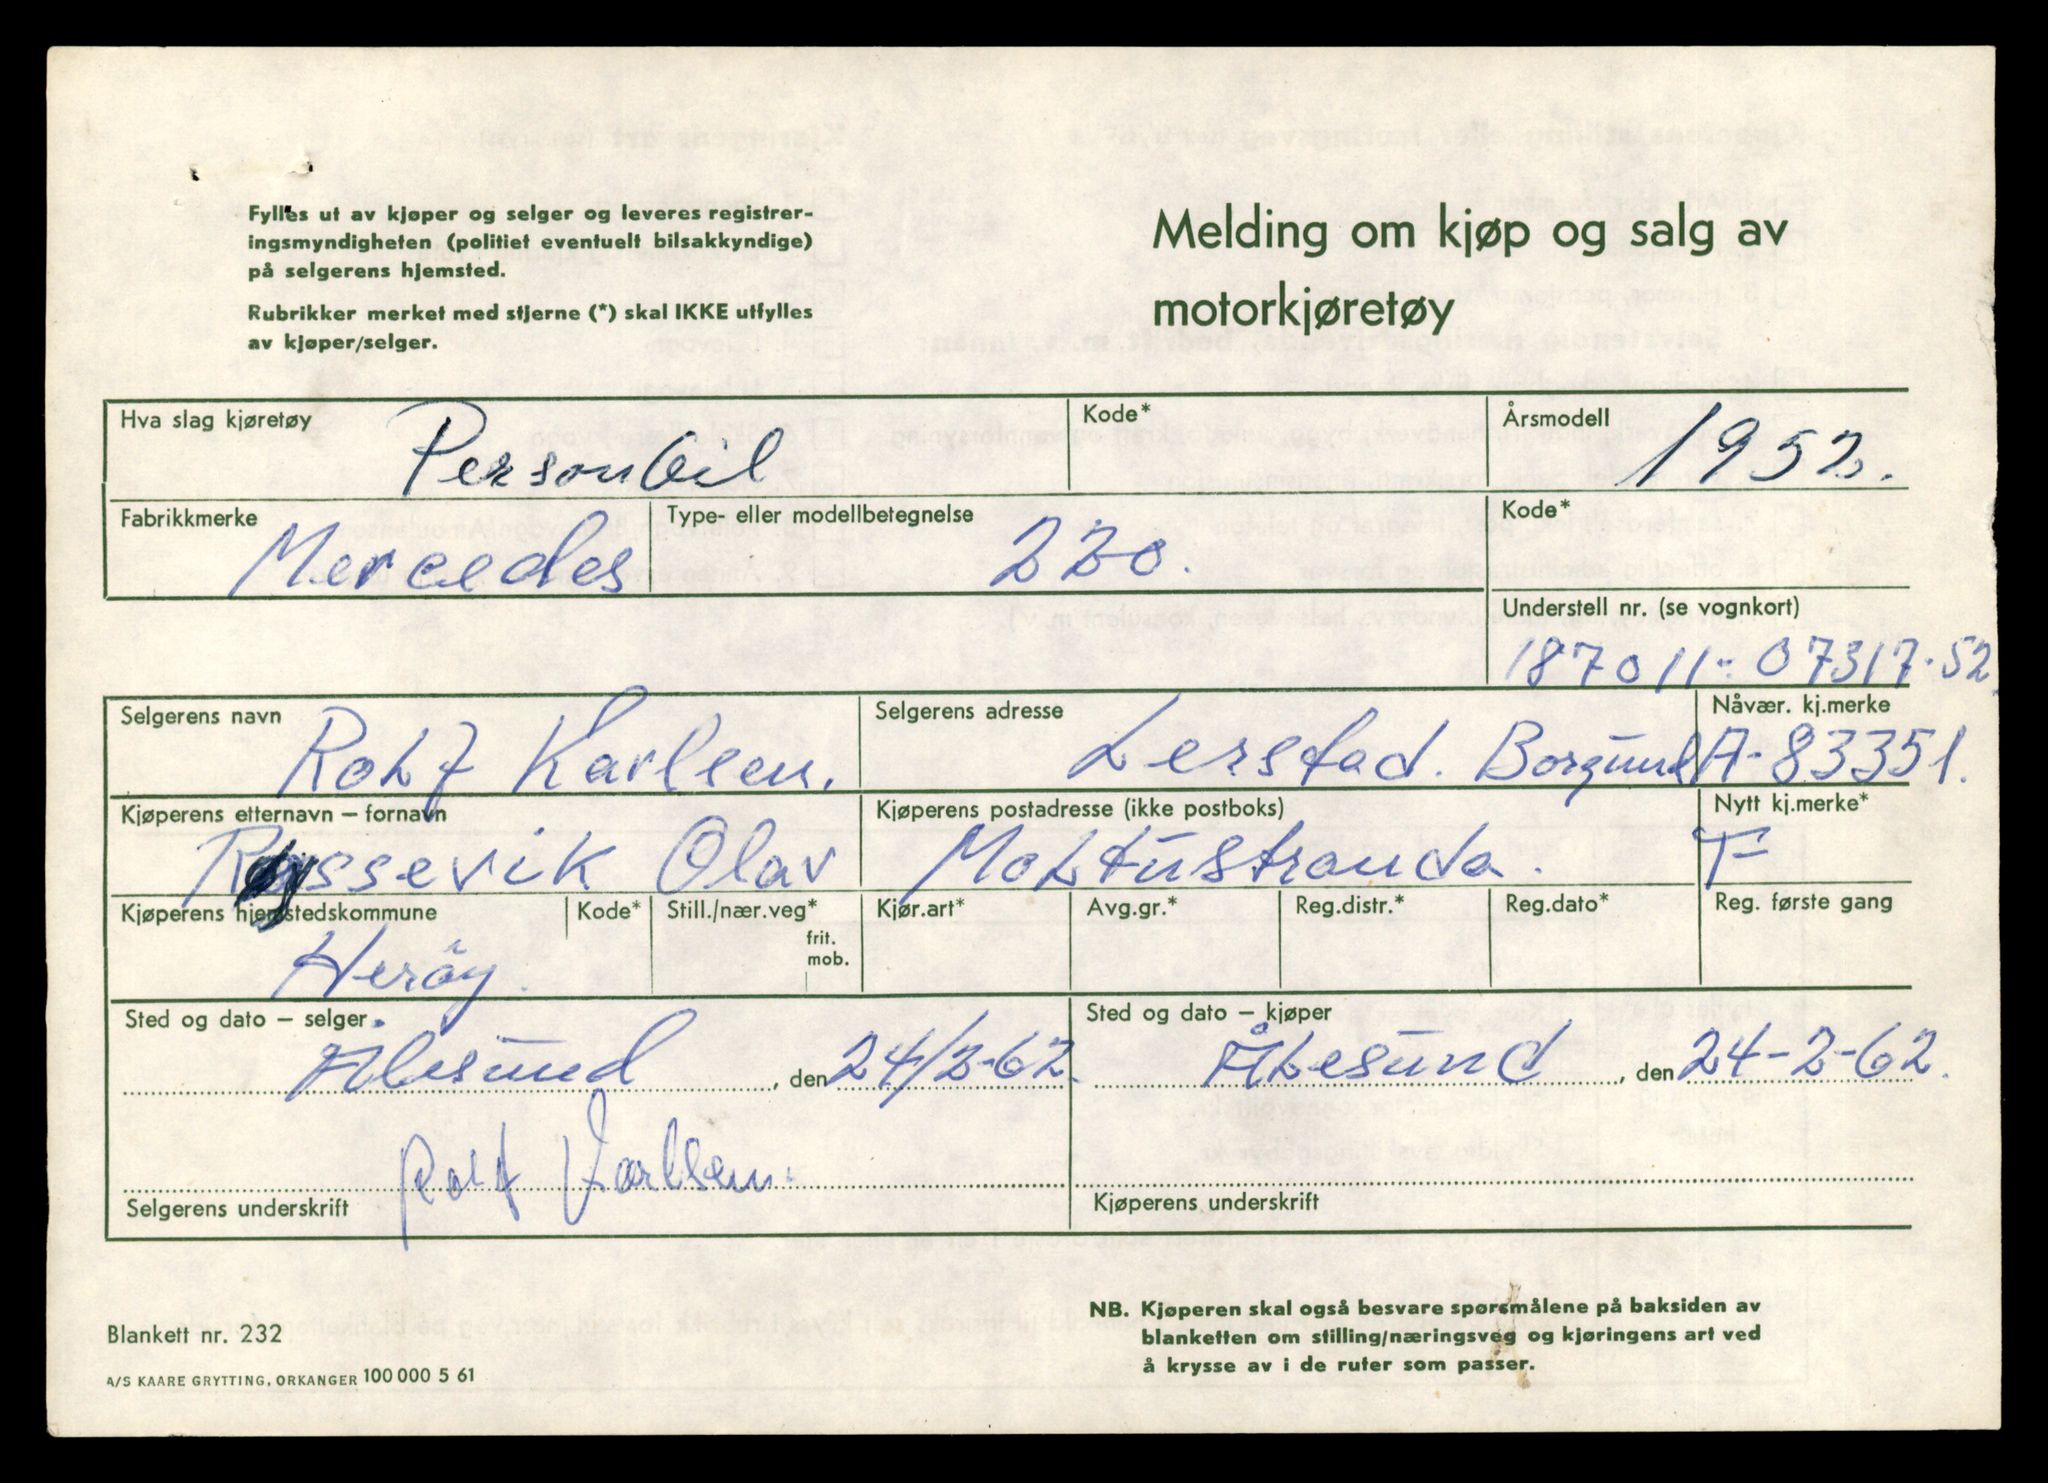 Fylles ut av kjøper og selger og leveres registrer-
ingsmyndigheten (politiet eventuelt bilsakkyndige)
på selgerens hjemsted.
Rubrikker merket med stjerne (*) skal IKKE utfylles
av kjøper/selger.
Melding om kjøp og salg av
motorkjøretøy
Hva slag kjøretøy Personbil Kode* Årsmodell 1952.
Fabrikkmerke Mercedes Type- eller modellbetegnelse 220. Kode*
Understell nr. (se vognkort)
187011-07317-52
Selgerens navn Rolf Karlsen. Selgerens adresse Lerstad. Borgund Nåvær. kj.merke A-83351.
Kjøperens etternavn – fornavn Olav Kjøperens postadresse (ikke postboks) Moltustranda. Nytt kj.merke* F
Kjøperens hjemstedskommune Herøy. Kode* Still./nær.veg* frit. mob. Kjør.art* Avg.gr.* Reg.distr.* Reg.dato* Reg. første gang
Sted og dato – selger Ålesund, den 24/2-62. Sted og dato – kjøper Ålesund, den 24-2-62.
Rolf Karlsen.
Selgerens underskrift Kjøperens underskrift
NB. Kjøperen skal også besvare spørsmålene på baksiden av
blanketten om stilling/næringsveg og kjøringens art ved
å krysse av i de ruter som passer.
Blankett nr. 232
A/S KAARE GRYTTING, ORKANGER 100 000 5 61